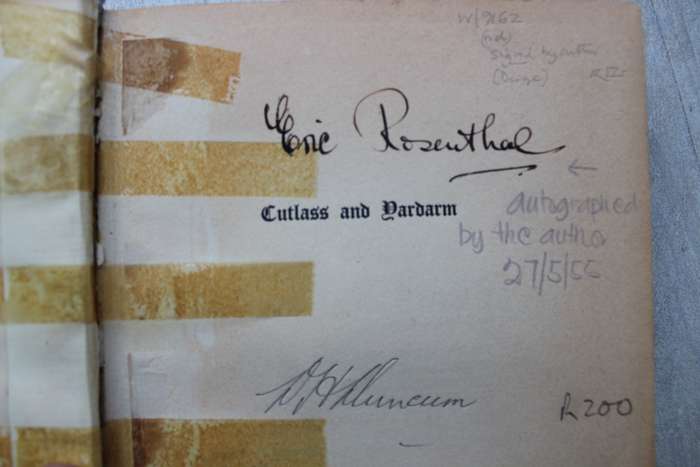 W/9162
(nd)
signed by author
Eric Rosenthal
←
Cutlass and Yardarm
autographed
by the author
27/5/55
R200